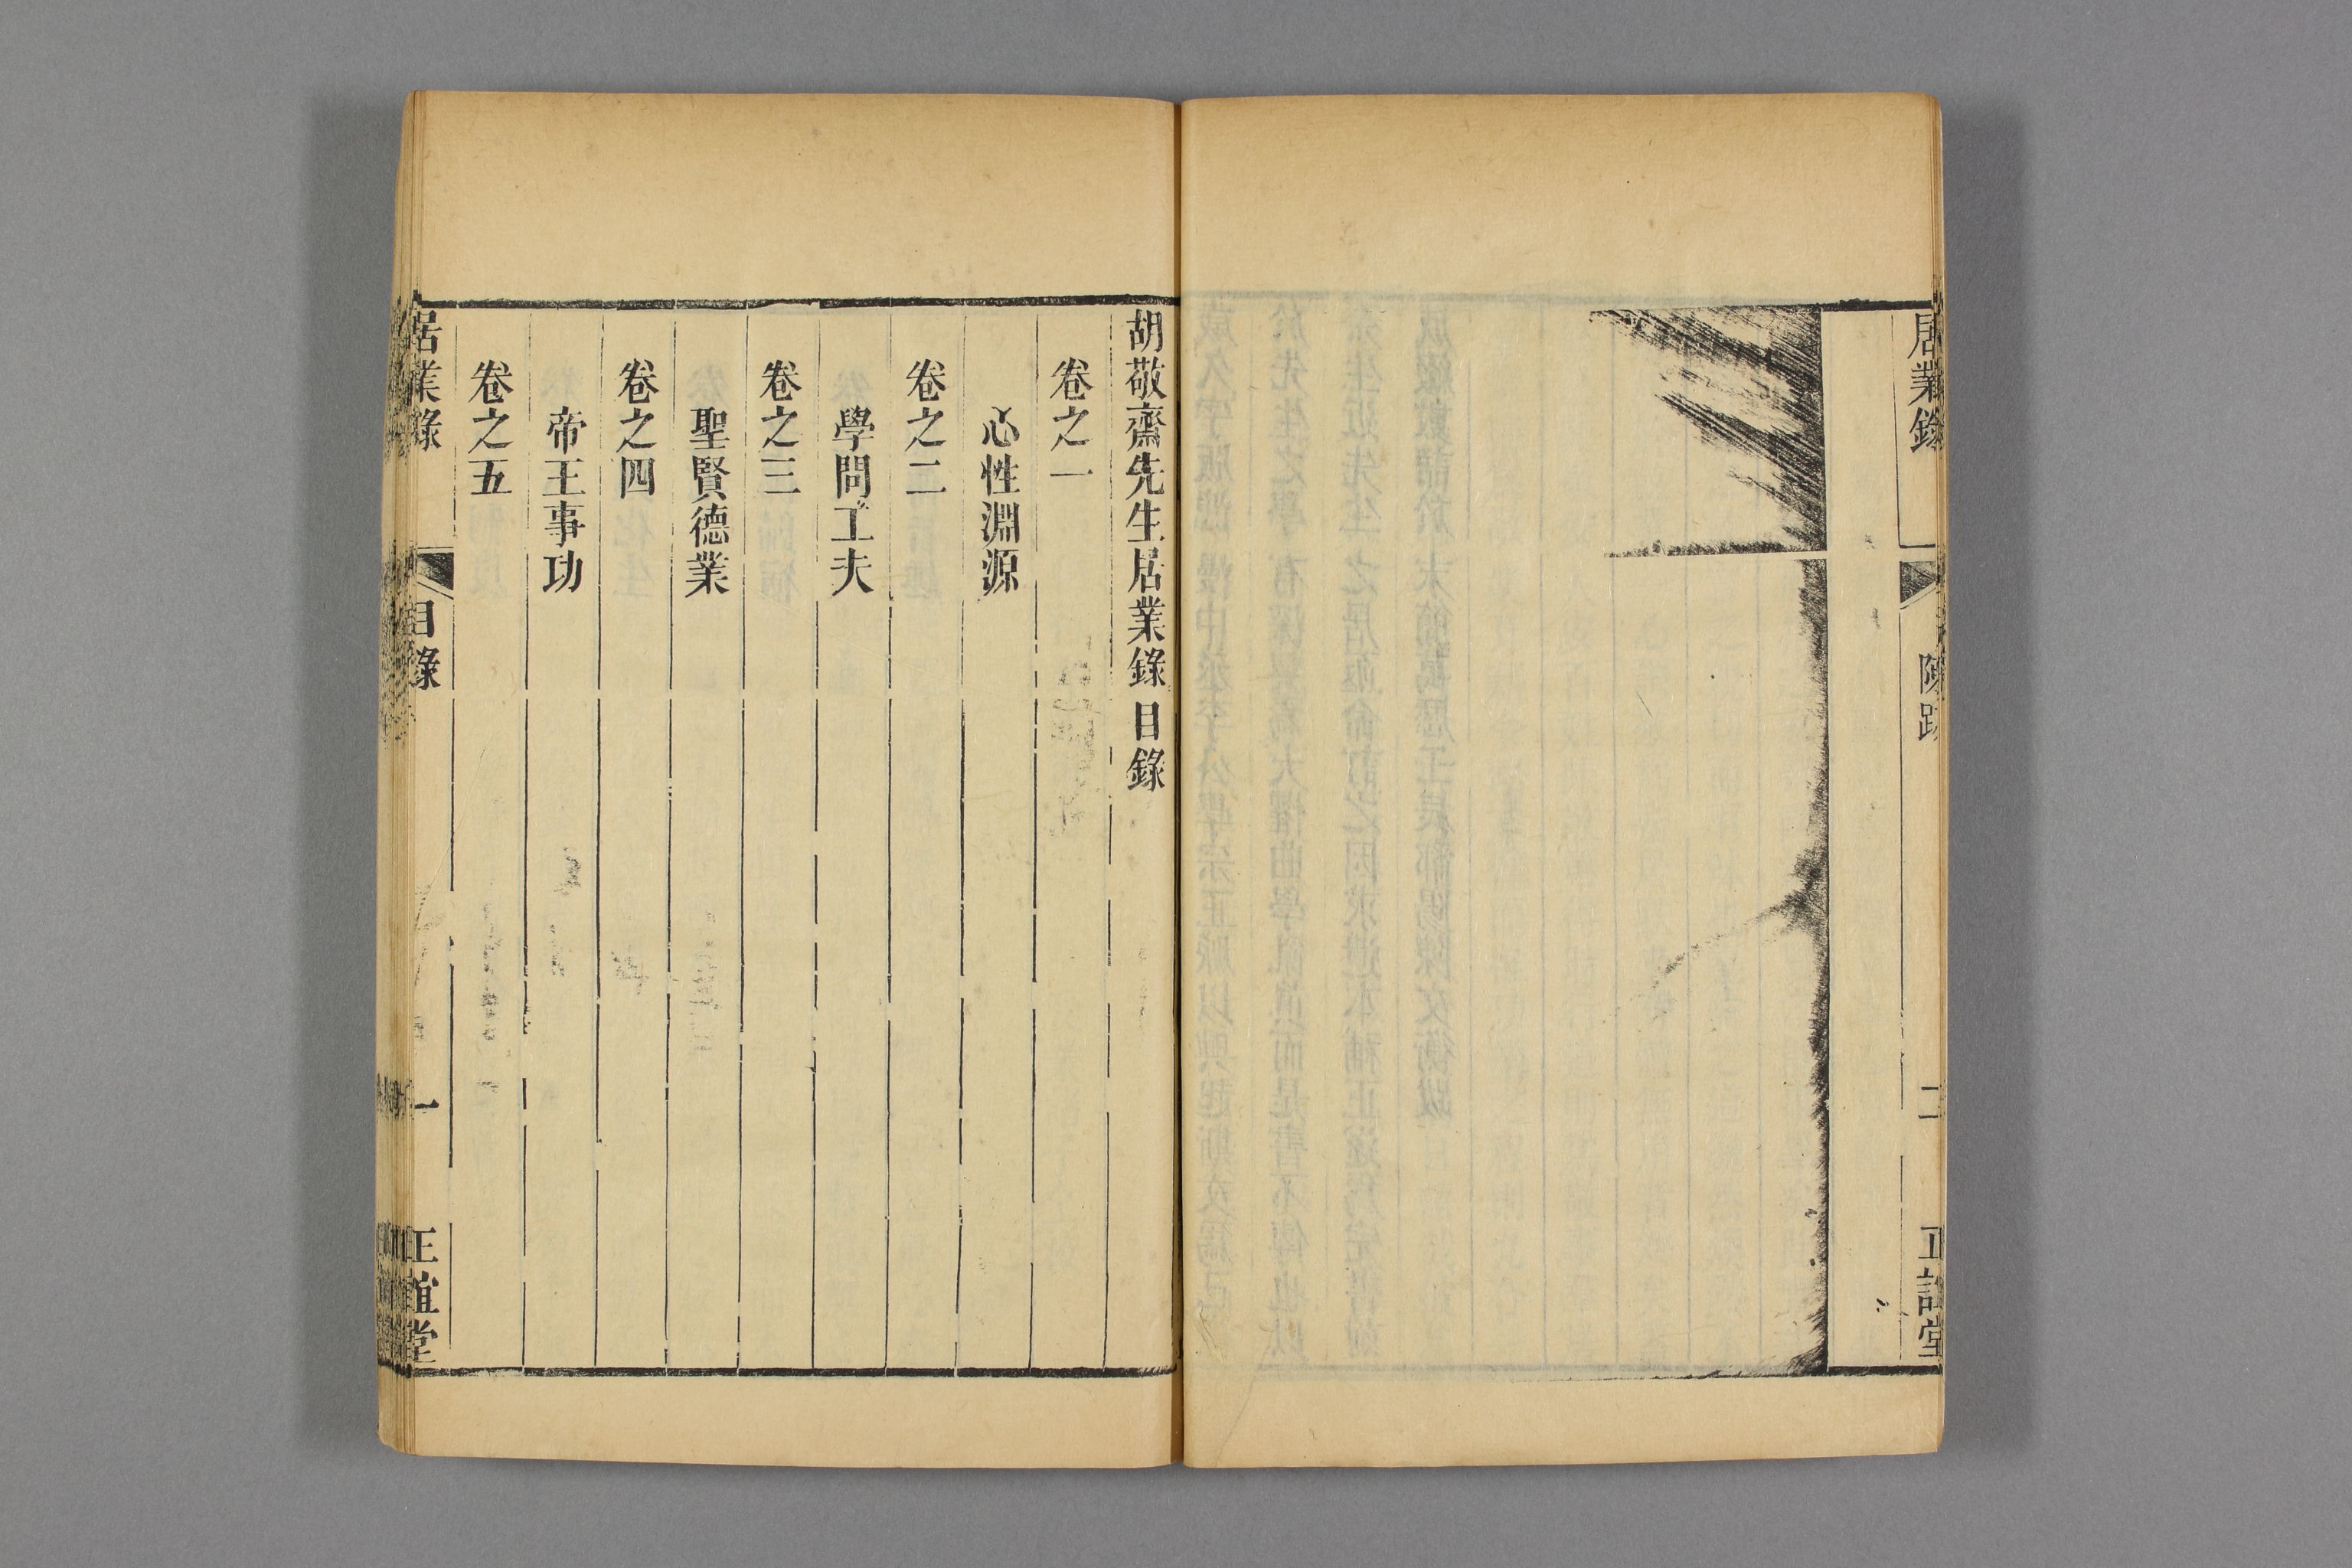 居業錄
陳跋
二
正誼堂
胡敬齋先生居業錄目錄
卷之一
心性淵源
卷之二
學問工夫
卷之三
聖賢德業
卷之四
帝王事功
卷之五
居業錄
目錄
一
正誼堂